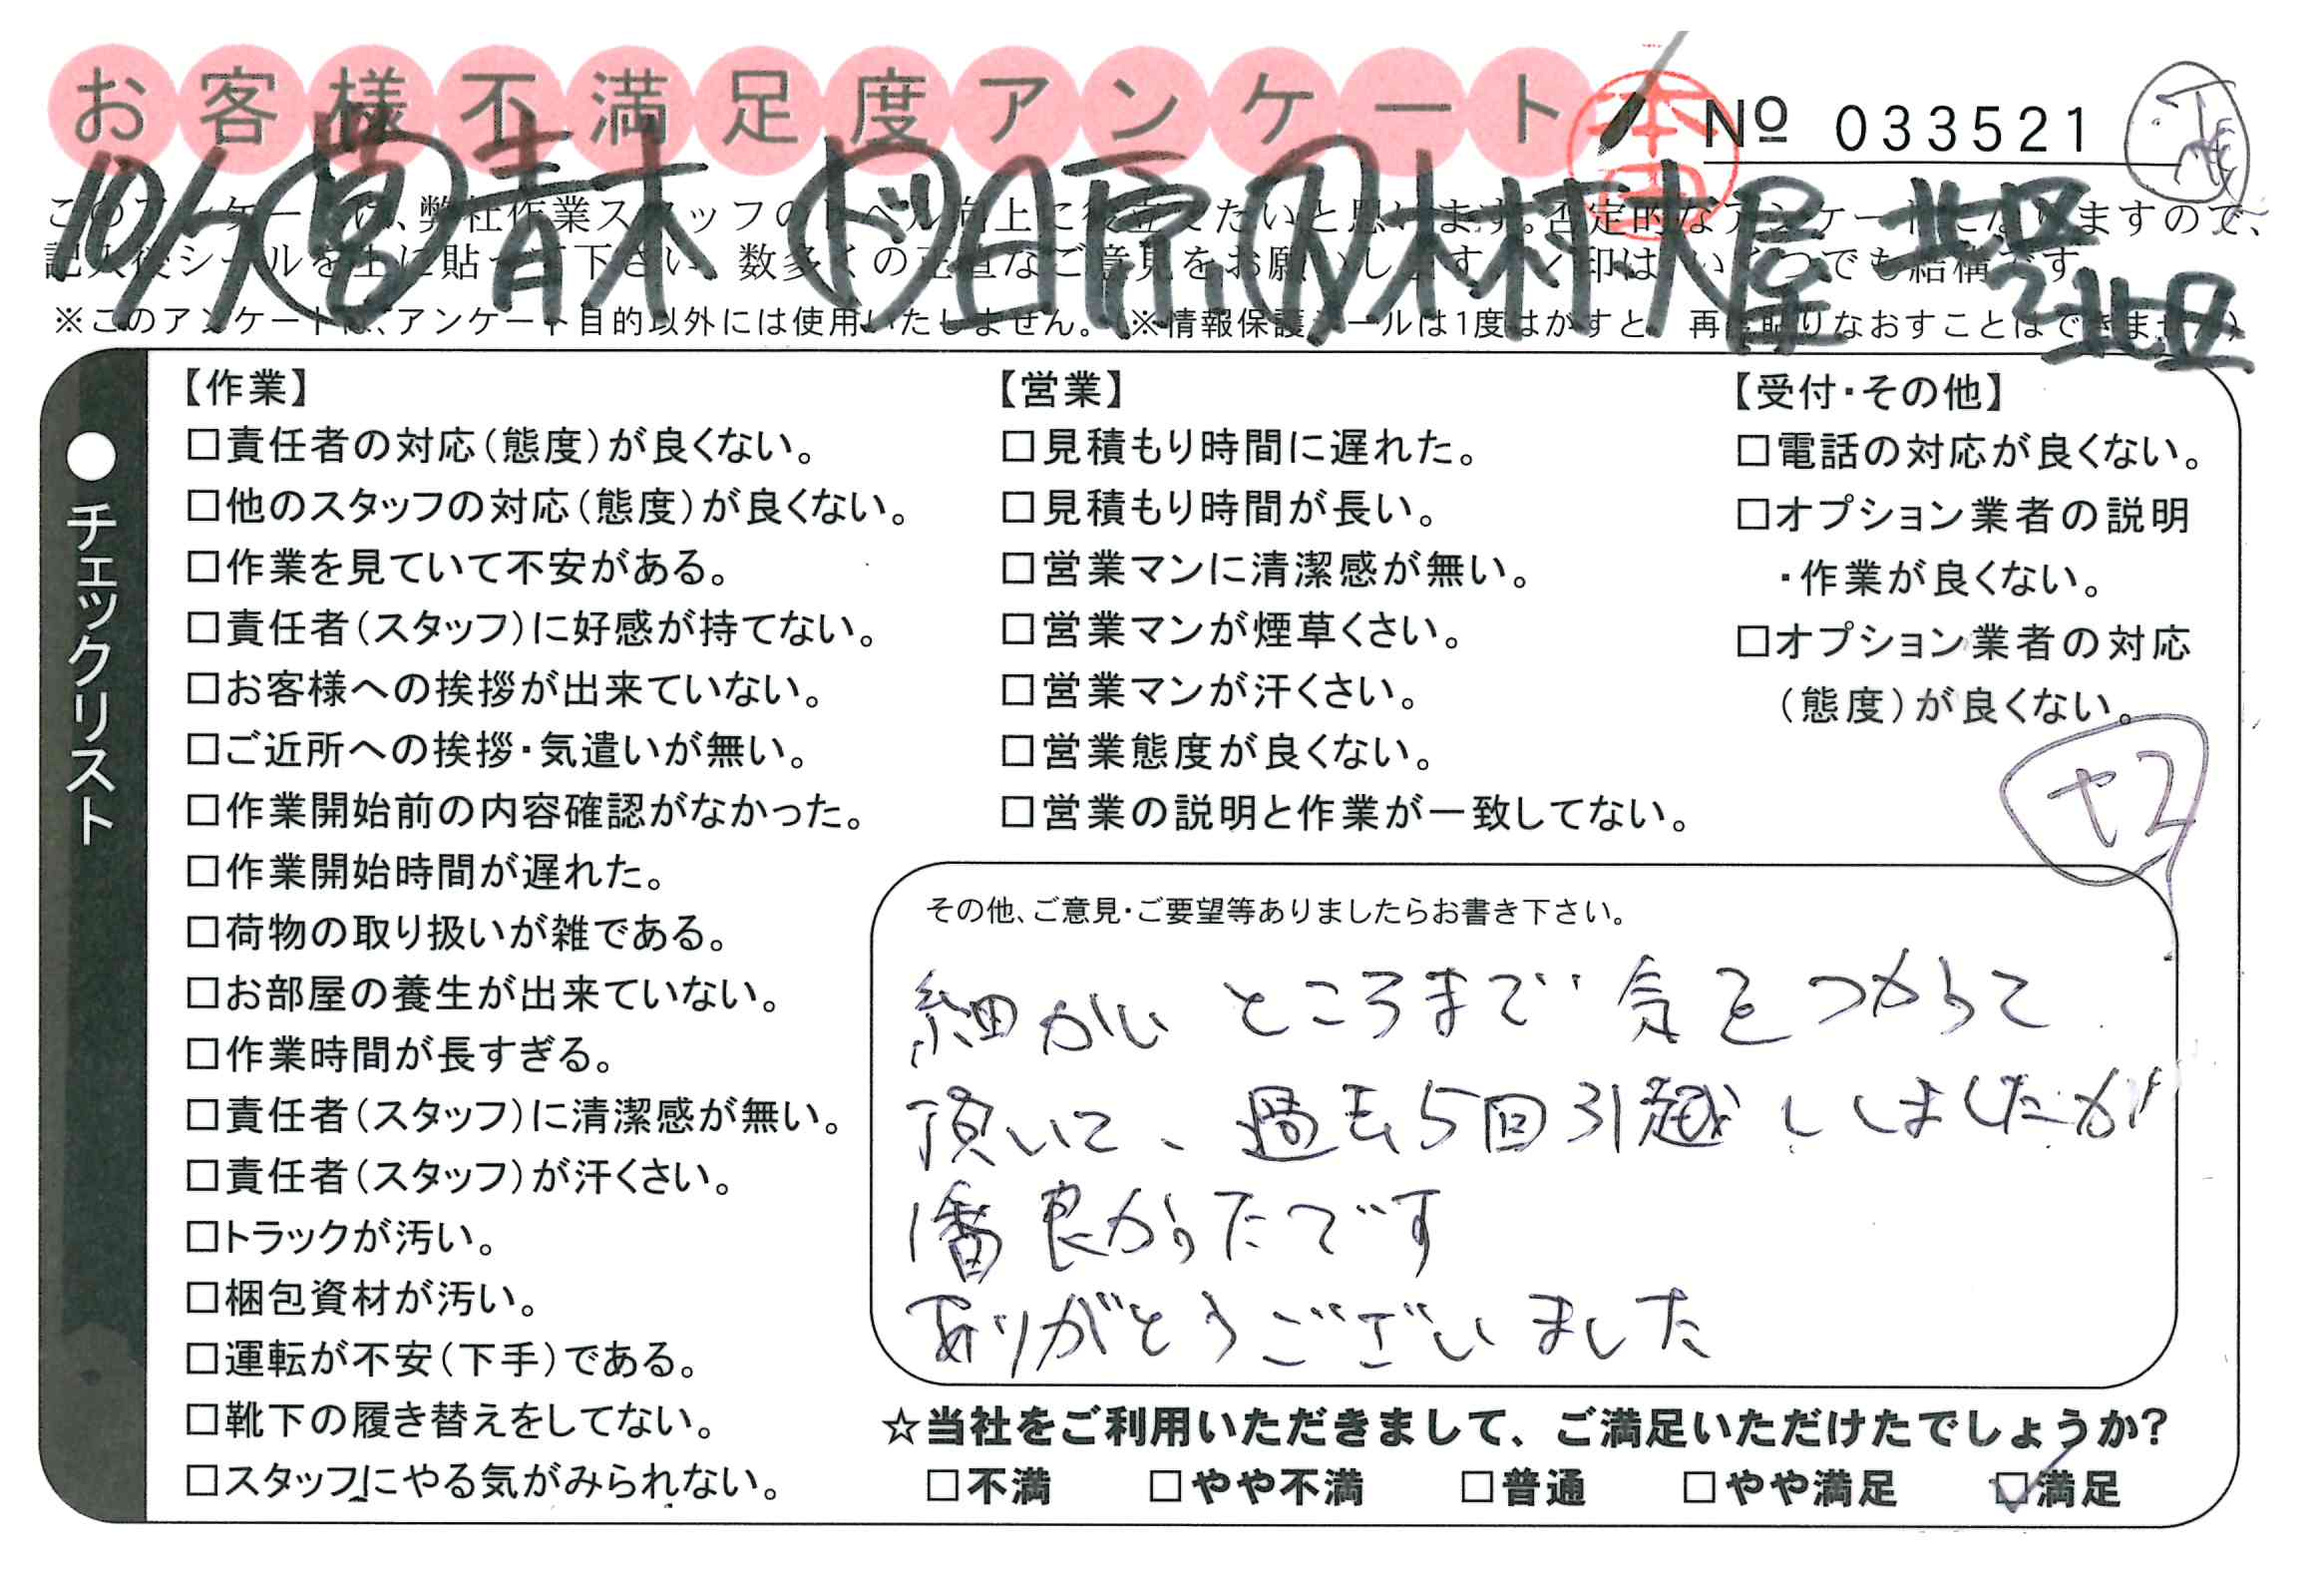 お客様不満足度アンケート
本田
No 033521
10/7 営 青木 ド 日原 ナ 木村 大屋 北区
北区
このアンケートは、弊社作業スタッフのレベル向上に役立てたいと思います。否定的なアンケートになりますので、
記入後シールを上に貼って下さい。数多くの正直なご意見をお願いします。レ印はいくつでも結構です。
※このアンケートは、アンケート目的以外には使用いたしません。(※情報保護シールは1度はがすと、再度貼りなおすことはできません)
●チェックリスト
【作業】
□責任者の対応(態度)が良くない。
□他のスタッフの対応(態度)が良くない。
□作業を見ていて不安がある。
□責任者(スタッフ)に好感が持てない。
□お客様への挨拶が出来ていない。
□ご近所への挨拶・気遣いが無い。
□作業開始前の内容確認がなかった。
□作業開始時間が遅れた。
□荷物の取り扱いが雑である。
□お部屋の養生が出来ていない。
□作業時間が長すぎる。
□責任者(スタッフ)に清潔感が無い。
□責任者(スタッフ)が汗くさい。
□トラックが汚い。
□梱包資材が汚い。
□運転が不安(下手)である。
□靴下の履き替えをしてない。
□スタッフにやる気がみられない。
【営業】
□見積もり時間に遅れた。
□見積もり時間が長い。
□営業マンに清潔感が無い。
□営業マンが煙草くさい。
□営業マンが汗くさい。
□営業態度が良くない。
□営業の説明と作業が一致してない。
【受付・その他】
□電話の対応が良くない。
□オプション業者の説明
・作業が良くない。
□オプション業者の対応
(態度)が良くない。
その他、ご意見・ご要望等ありましたらお書き下さい。
細かいところまで気をつかって
頂いて、過去5回引越ししましたが
1番良かったです
ありがとうございました
☆当社をご利用いただきまして、ご満足いただけたでしょうか?
□不満 □やや不満 □普通 □やや満足 ☑満足